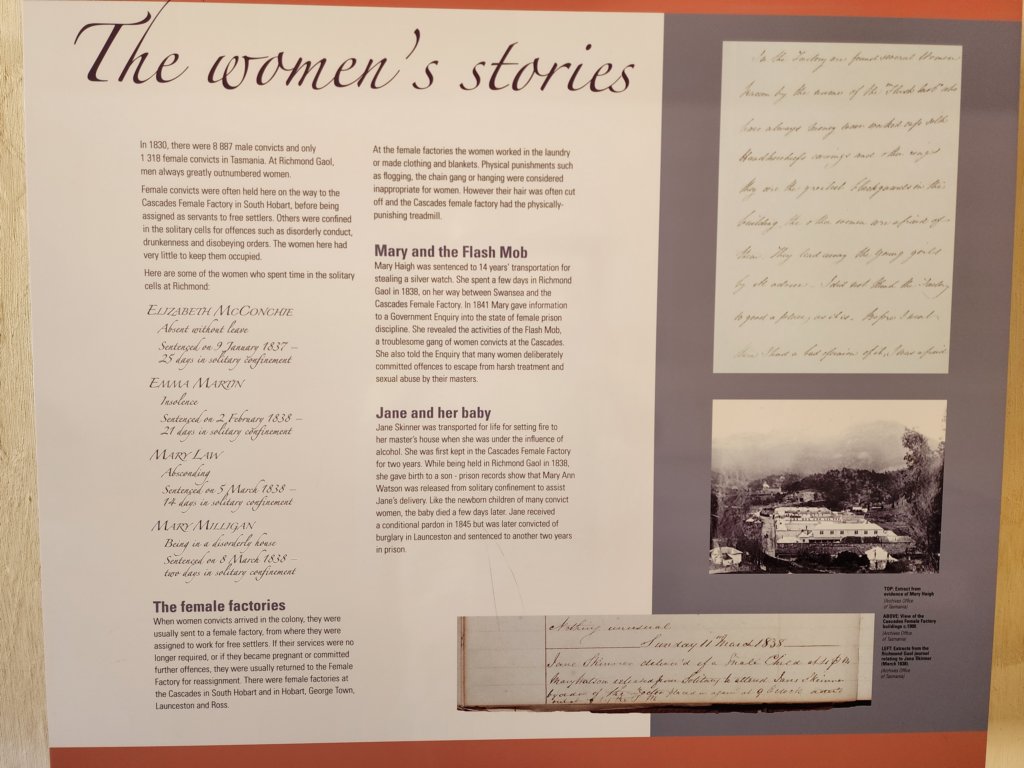 The women's stories
In 1830, there were 8 887 male convicts and only
1 318 female convicts in Tasmania. At Richmond Gaol,
men always greatly outnumbered women.
Female convicts were often held here on the way to the
Cascades Female Factory in South Hobart, before being
assigned as servants to free settlers. Others were confined
in the solitary cells for offences such as disorderly conduct,
drunkenness and disobeying orders. The women here had
very little to keep them occupied.
Here are some of the women who spent time in the solitary
cells at Richmond:
Elizabeth McConchie
Absent without leave
Sentenced on 9 January 1837 –
25 days in solitary confinement
Emma Martin
Insolence
Sentenced on 2 February 1838 –
21 days in solitary confinement
Mary Law
Absconding
Sentenced on 5 March 1838 –
14 days in solitary confinement
Mary Milligan
Being in a disorderly house
Sentenced on 8 March 1838 –
two days in solitary confinement
The female factories
When women convicts arrived in the colony, they were
usually sent to a female factory, from where they were
assigned to work for free settlers. If their services were no
longer required, or if they became pregnant or committed
further offences, they were usually returned to the Female
Factory for reassignment. There were female factories at
the Cascades in South Hobart and in Hobart, George Town,
Launceston and Ross.
At the female factories the women worked in the laundry
or made clothing and blankets. Physical punishments such
as flogging, the chain gang or hanging were considered
inappropriate for women. However their hair was often cut
off and the Cascades female factory had the physically-
punishing treadmill.
Mary and the Flash Mob
Mary Haigh was sentenced to 14 years' transportation for
stealing a silver watch. She spent a few days in Richmond
Gaol in 1838, on her way between Swansea and the
Cascades Female Factory. In 1841 Mary gave information
to a Government Enquiry into the state of female prison
discipline. She revealed the activities of the Flash Mob,
a troublesome gang of women convicts at the Cascades.
She also told the Enquiry that many women deliberately
committed offences to escape from harsh treatment and
sexual abuse by their masters.
Jane and her baby
Jane Skinner was transported for life for setting fire to
her master's house when she was under the influence of
alcohol. She was first kept in the Cascades Female Factory
for two years. While being held in Richmond Gaol in 1838,
she gave birth to a son - prison records show that Mary Ann
Watson was released from solitary confinement to assist
Jane's delivery. Like the newborn children of many convict
women, the baby died a few days later. Jane received
a conditional pardon in 1845 but was later convicted of
burglary in Launceston and sentenced to another two years
in prison.
In the Factory are found several Women
known by the name of the "Flash mob" who
have always money wear worked caps silk
Handkerchiefs earrings and other rings
they are the greatest blackguards in the
building the other women are afraid of
them. They lead away the young girls
by ill advice. I did not think the Factory
so good a place, as it is. Before I went
then I had a bad opinion of it, I was afraid
TOP: Extract from
evidence of Mary Haigh
(Archives Office
of Tasmania)
ABOVE: View of the
Cascades Female Factory
buildings c.1900
(Archives Office
of Tasmania)
LEFT: Extracts from the
Richmond Gaol journal
relating to Jane Skinner
(March 1838).
(Archives Office
of Tasmania)
Nothing unusual
Sunday 11 March 1838
Jane Skinner deliver'd of a Male Child at
Mary Watson released from Solitary to attend Jane Skinner
by order of the